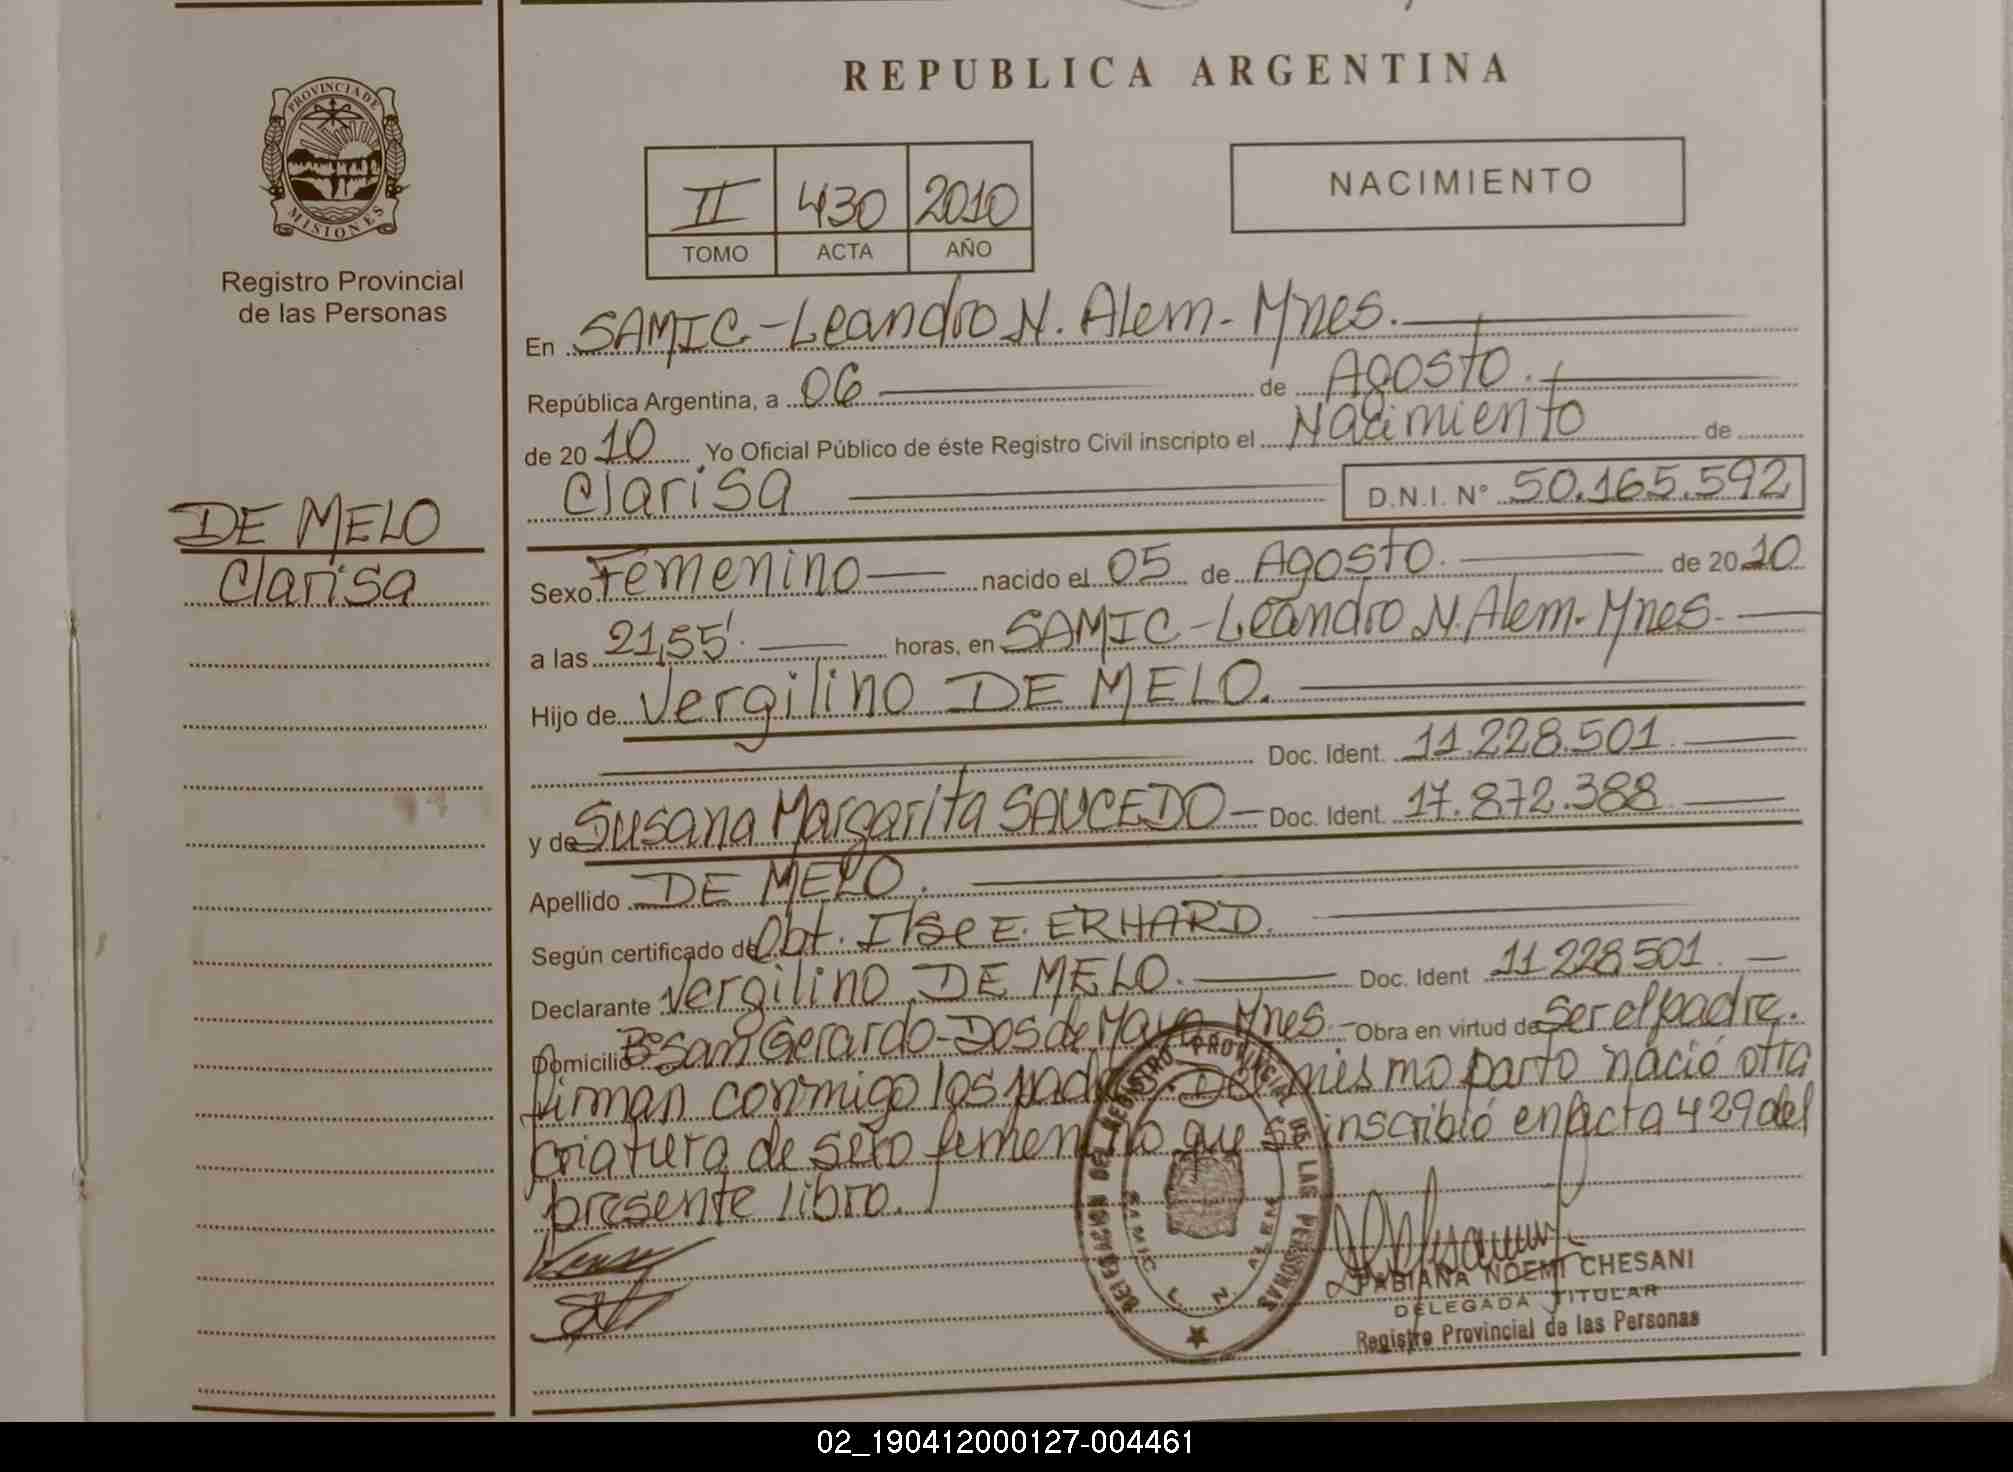 REPUBLICA ARGENTINA
PROVINCIA DE MISIONES
Registro Provincial
de las Personas
II 430 2010
TOMO ACTA AÑO
NACIMIENTO
DE MELO
Clarisa
En SAMIC - Leandro N. Alem - Mnes.
República Argentina, a 06 de Agosto.
de 2010 Yo Oficial Público de éste Registro Civil inscripto el Nacimiento de
Clarisa D.N.I. N° 50.165.592
Sexo Femenino nacido el 05 de Agosto. de 2010
a las 21,55'. horas, en SAMIC - Leandro N. Alem - Mnes.
Hijo de Vergilino DE MELO.
Doc. Ident. 11.228.501
y de Susana Margarita SAUCEDO - Doc. Ident. 17.872.388
Apellido DE MELO.
Según certificado de Obt. Ilse E. ERHARD.
Declarante Vergilino DE MELO. Doc. Ident 11.228.501.
Domicilio B° San Gerardo - Dos de Mayo Mnes. - Obra en virtud de ser el padre.
Firman conmigo los padres. Del mismo parto nació otra
criatura de sexo femenino que se inscribió en acta 429 del
presente libro.
DELEGACION DEL REGISTRO PROVINCIAL DE LAS PERSONAS
SAMIC L. N. ALEM
FABIANA NOEMI CHESANI
DELEGADA TITULAR
Registro Provincial de las Personas
02_190412000127-004461